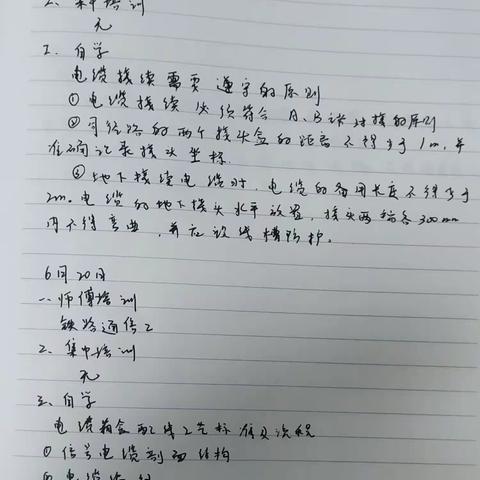 2、集中培训
无
3、自学
电缆接续需要遵守的原则
①电缆接续必须符合A、B端对接的原则
②同径路的两个接头盒的距离不得小于1m,并
准确记录接头坐标.
③地下接续电缆时,电缆的备用长度不得小于
2m。电缆的地下接头水平放置,接头两端各300mm
内不得弯曲,并应设线槽防护。
6月20日
一、师傅培训
铁路通信工
2、集中培训
无
三、自学
电缆箱盒配线工艺标准及流程
①信号电缆剖面结构
②电缆